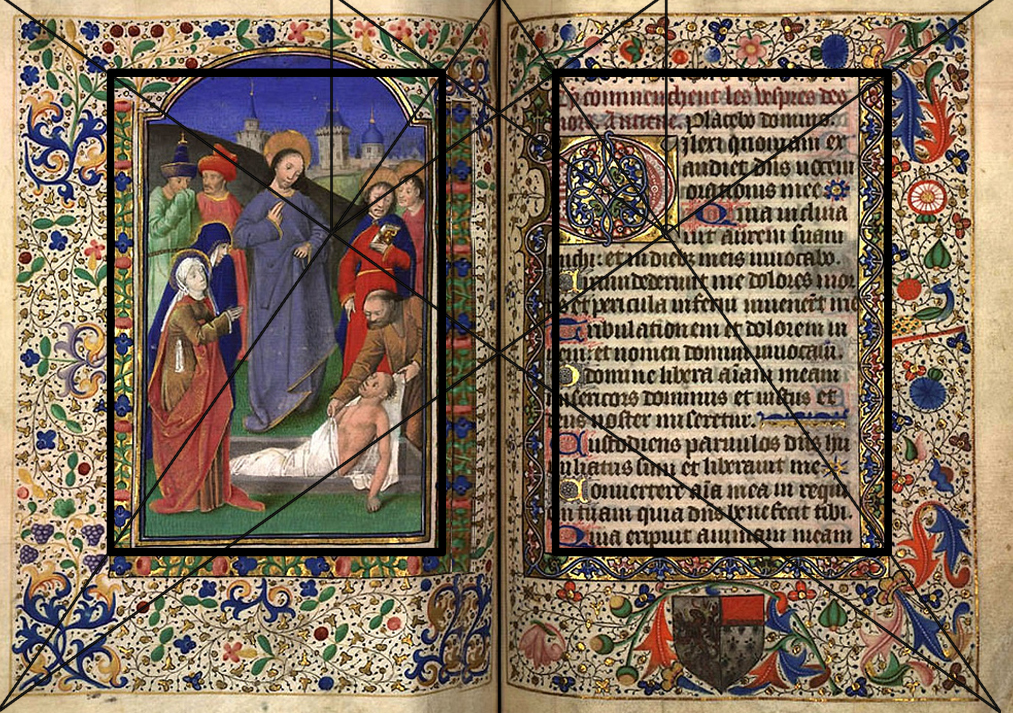 Cy commenchent les vespres des
mors. Antiene. Placebo domino.
Dilexi quoniam ex
audiet dns vocem
orationis mee
Quia inclina
uit aurem suam
michi: et in dieb; meis inuocabo.
Circumdederunt me dolores mor
et pericula inferni inuenert me
Tribulationem et dolorem in
ueni: et nomen domini inuocaui.
O domine libera aiam meam
misericors dominus et iustus et
deus noster miseretur.
Custodiens paruulos dns hu
miliatus sum et liberauit me
Conuertere aia mea in requi
em tuam quia dns benefecit tibi.
Quia eripuit animam meam